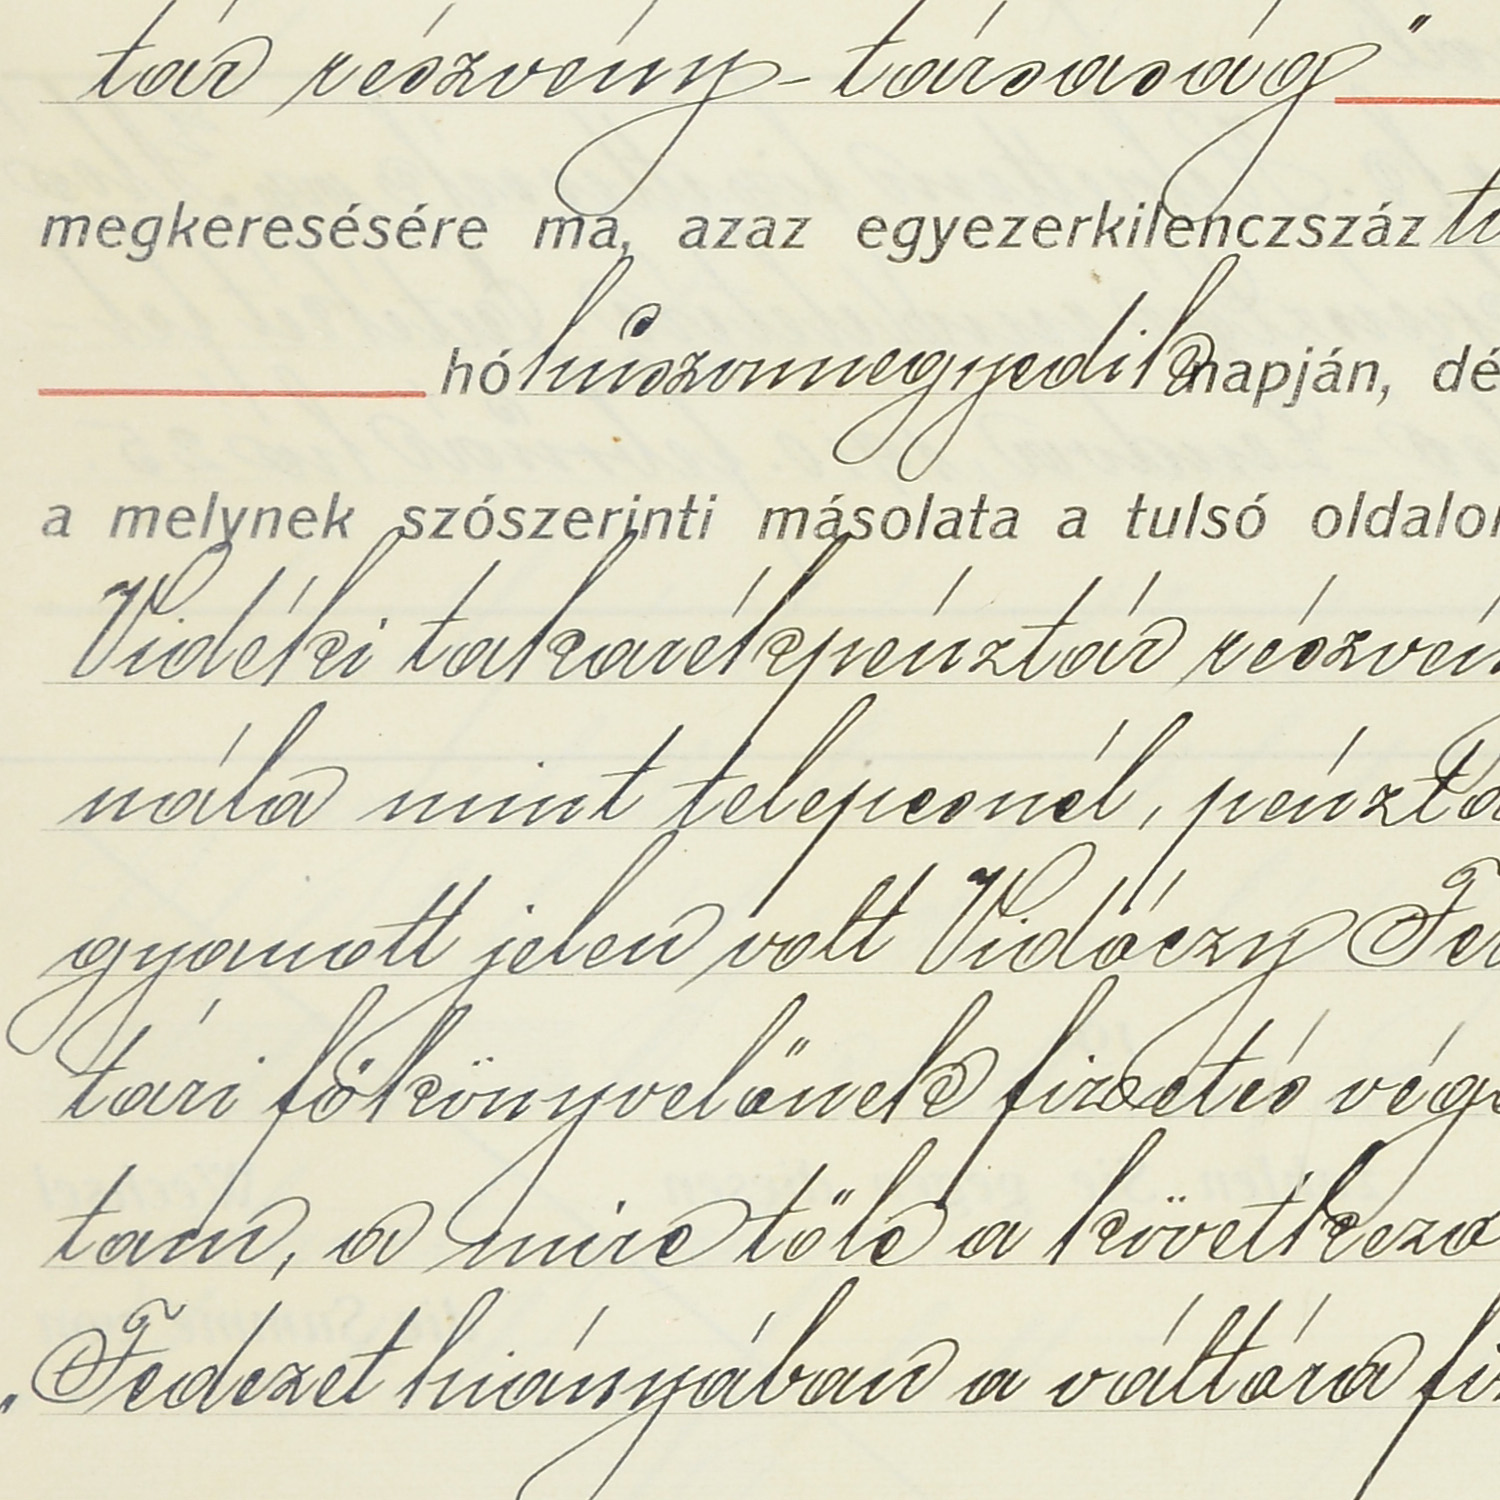 tár részvény-társaság"
megkeresésére ma, azaz egyezerkilenczszáz
hó huszonnegyedik napján, dé
a melynek szószerinti másolata a tulsó oldalon
Vidéki takarékpénztár részvén
nála mint telepesnél, pénztá
gyanott jelen volt Vidóczy Fer
tári főkönyvelőnek fizetés vége
tam, a mire tőle a következő
„Fedezet hiányában a váltóra fiz